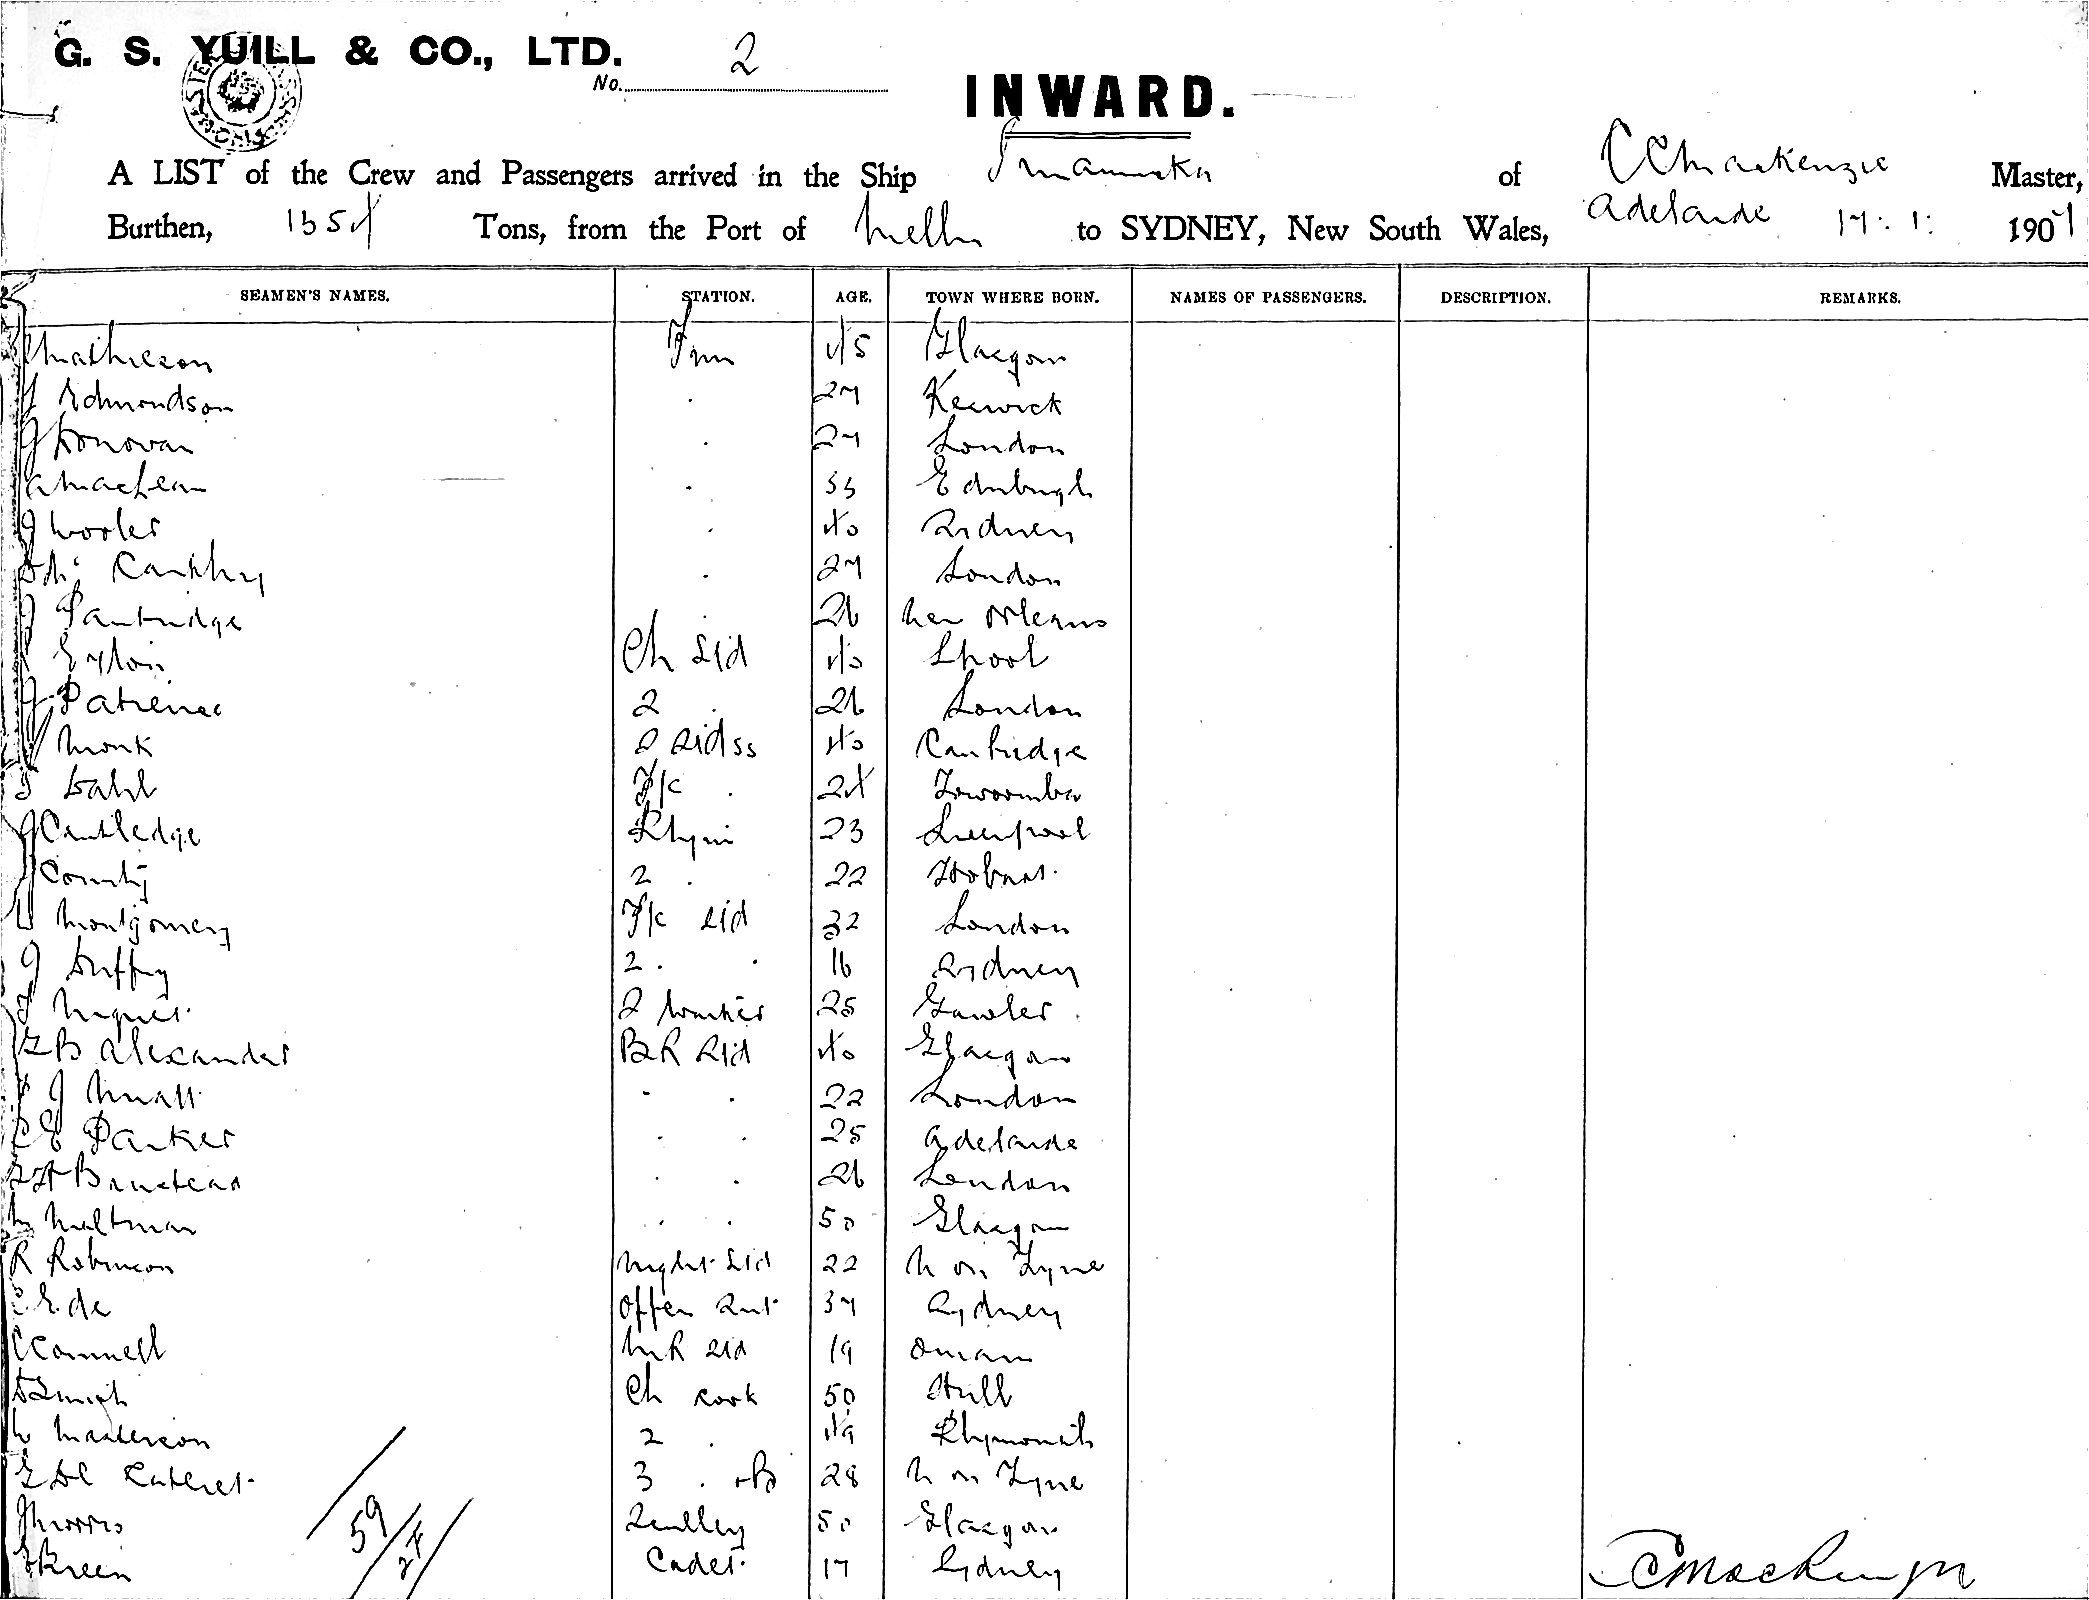 G. S. YUILL & CO., LTD.
No. 2
INWARD.
A LIST of the Crew and Passengers arrived in the Ship Innamincka of C C Mackenzie Master,
Burthen, Tons, from the Port of Melb to SYDNEY, New South Wales, Adelaide 17.1. 1901
SEAMEN'S NAMES. STATION. AGE. TOWN WHERE BORN. NAMES OF PASSENGERS. DESCRIPTION. REMARKS.
Mathieson Fmn 45 Glasgow
J Edmondson . 27 Keswick
J Donovan . 27 London
A MacLean . Edinburgh
J Wooler . 40 Sydney
D Mc Carthy . 27 London
J Partridge . 26 New Orleans
Eyton Ch Std 40 Lpool
J Patience 2 . 26 London
Monk 40 Cambridge
Dahl F/c . 24 Towoomba
J Cantledge 23 Liverpool
J County 2 . 22 Hobart.
W Montgomery F/c Std 32 London
J Duffy 2 . . 16 Sydney
2 25 Gawler
G B Alexander BR Std 40 Glasgow
J Myatt . . 22 London
C E Parker . . 25 Adelaide
. . 26 London
Maltman . . 50 Glasgow
R Robinson Night Std 22 N on Tyne
Ede 37 Sydney
C Connell MR Std 19
D Smith Ch Cook 50 Hull
W Masterson 2 . 49 Plymouth
3 . 28 N on Tyne
J Morris Scullery 50 Glasgow
Green Cadet 17 Sydney
59
C C MacKenzie